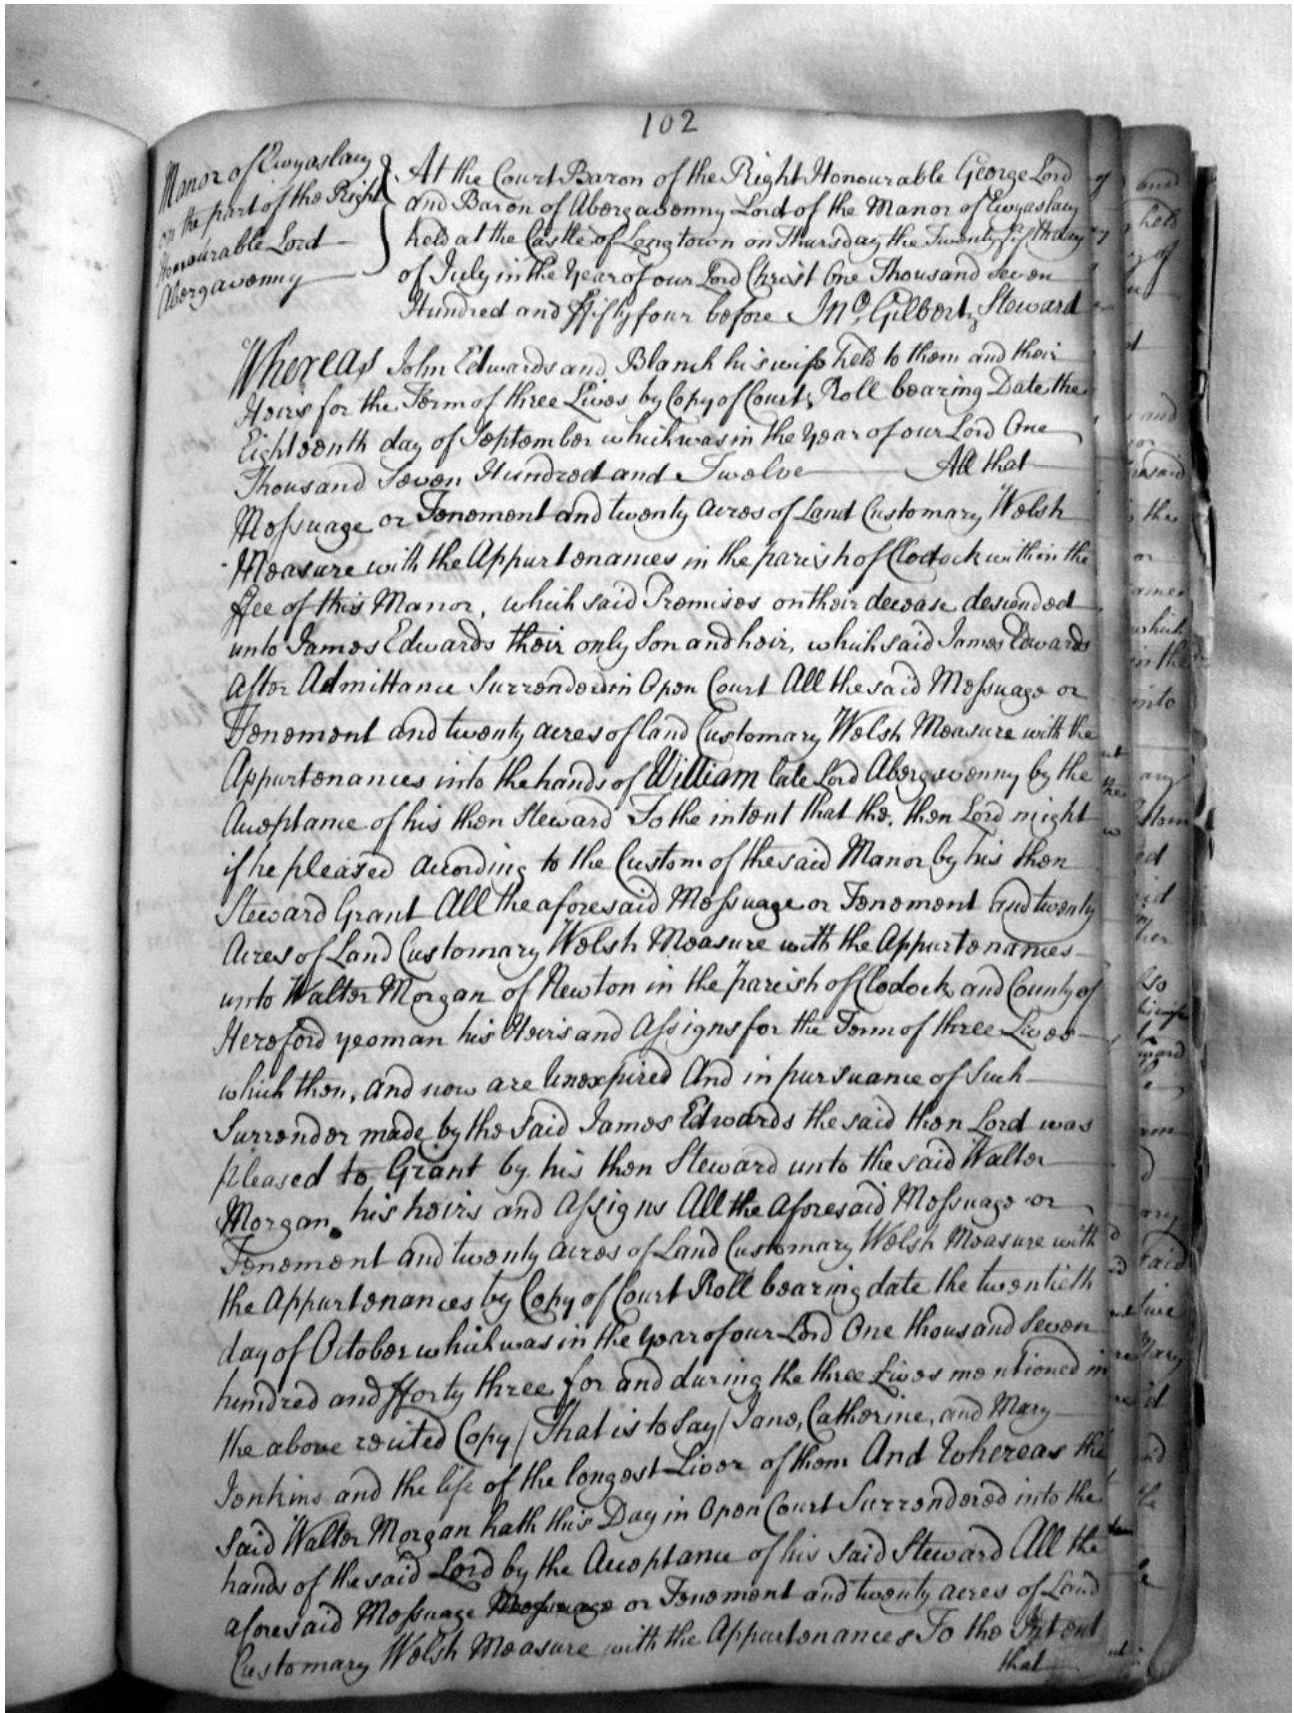 102
Manor of Ewyaslacy
on the part of the Right
Honourable Lord
Abergavenny
At the Court Baron of the Right Honourable George Lord
and Baron of Abergavenny Lord of the Manor of Ewyaslacy
held at the Castle of Longtown on Thursday the Twenty fifth day
of July in the Year of our Lord Christ One Thousand Seven
Hundred and ffifty four before Jno. Gilbert, Steward
Whereas John Edwards and Blanch his wife held to them and their
Heirs for the Term of three Lives by Copy of Court Roll bearing Date the
Eighteenth day of September which was in the Year of our Lord One
Thousand Seven Hundred and Twelve All that
Messuage or Tenement and twenty acres of Land Customary Welsh
Measure with the Appurtenances in the parish of Clodock within the
ffee of this Manor, which said Premises on their decease descended
unto James Edwards their only Son and heir, which said James Edwards
after Admittance Surrendered in Open Court All the said Messuage or
Tenement and twenty acres of land Customary Welsh Measure with the
Appurtenances into the hands of William late Lord Abergavenny by the
Acceptance of his then Steward To the intent that the then Lord might
if he pleased according to the Custom of the said Manor by his then
Steward Grant All the aforesaid Messuage or Tenement and twenty
Acres of Land Customary Welsh Measure with the Appurtenances
unto Walter Morgan of Newton in the parish of Clodock and County of
Hereford yeoman his Heirs and Assigns for the Term of three Lives
which then, and now are Unexpired And in pursuance of Such
Surrender made by the Said James Edwards the said then Lord was
pleased to Grant by his then Steward unto the said Walter
Morgan his heirs and Assigns All the Aforesaid Messuage or
Tenement and twenty acres of Land Customary Welsh Measure with
the Appurtenances by Copy of Court Roll bearing date the twentieth
day of October which was in the Year of our Lord One thousand Seven
hundred and fforty three for and during the three Lives mentioned in
the above recited Copy / That is to Say / Jane, Catherine, and Mary
Jenkins and the life of the longest Liver of them And Whereas the
Said Walter Morgan hath this Day in Open Court Surrendered into the
hands of the said Lord by the Acceptance of his said Steward All the
aforesaid Messuage Messuage or Tenement and twenty acres of Land
Customary Welsh Measure with the Appurtenances To the Intent
that